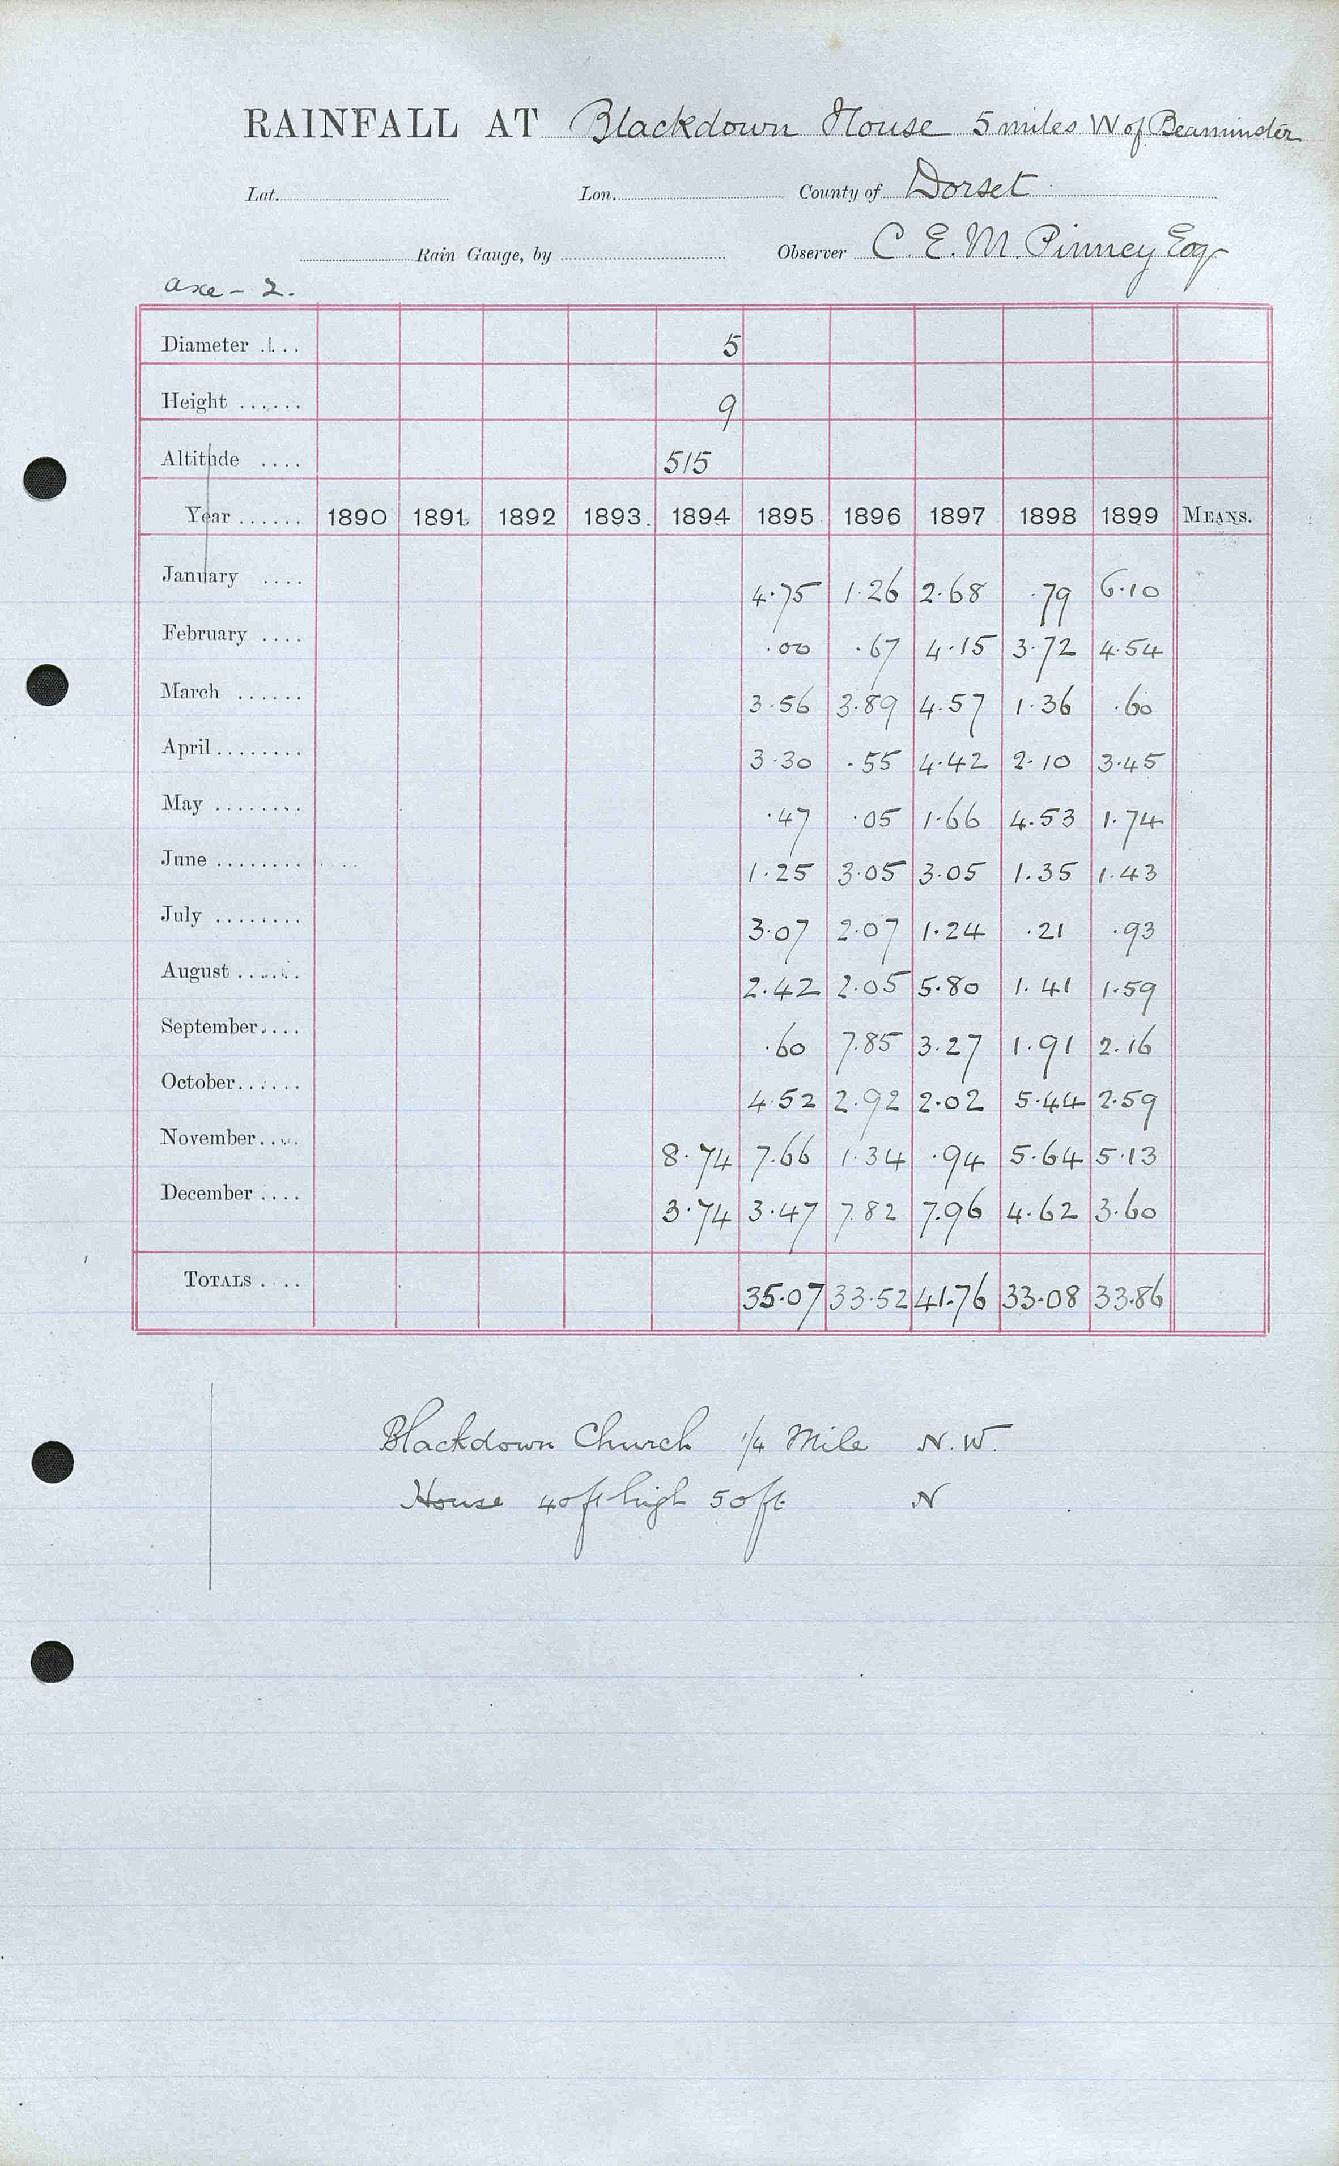 RAINFALL AT Blackdown House 5 miles W of Beaminster
Lat. Lon. County of Dorset
Rain Gauge, by Observer C. E. M. Pinney Esq
axe - 2.
Diameter .... 5
Height ...... 9
Altitude .... 515
Year ...... 1890 1891 1892 1893 1894 1895 1896 1897 1898 1899 MEANS.
January .... 4.75 1.26 2.68 .79 6.10
February .... .00 .67 4.15 3.72 4.54
March ...... 3.56 3.89 4.57 1.36 .60
April ........ 3.30 .55 4.42 2.10 3.45
May ........ .47 .05 1.66 4.53 1.74
June ........ 1.25 3.05 3.05 1.35 1.43
July ........ 3.07 2.07 1.24 .21 .93
August ...... 2.42 2.05 5.80 1.41 1.59
September.... .60 7.85 3.27 1.91 2.16
October...... 4.52 2.92 2.02 5.44 2.59
November.... 8.74 7.66 1.34 .94 5.64 5.13
December .... 3.74 3.47 7.82 7.96 4.62 3.60
TOTALS .... 35.07 33.52 41.76 33.08 33.86
Blackdown Church 1/4 Mile N.W.
House 40ft high 50ft. N